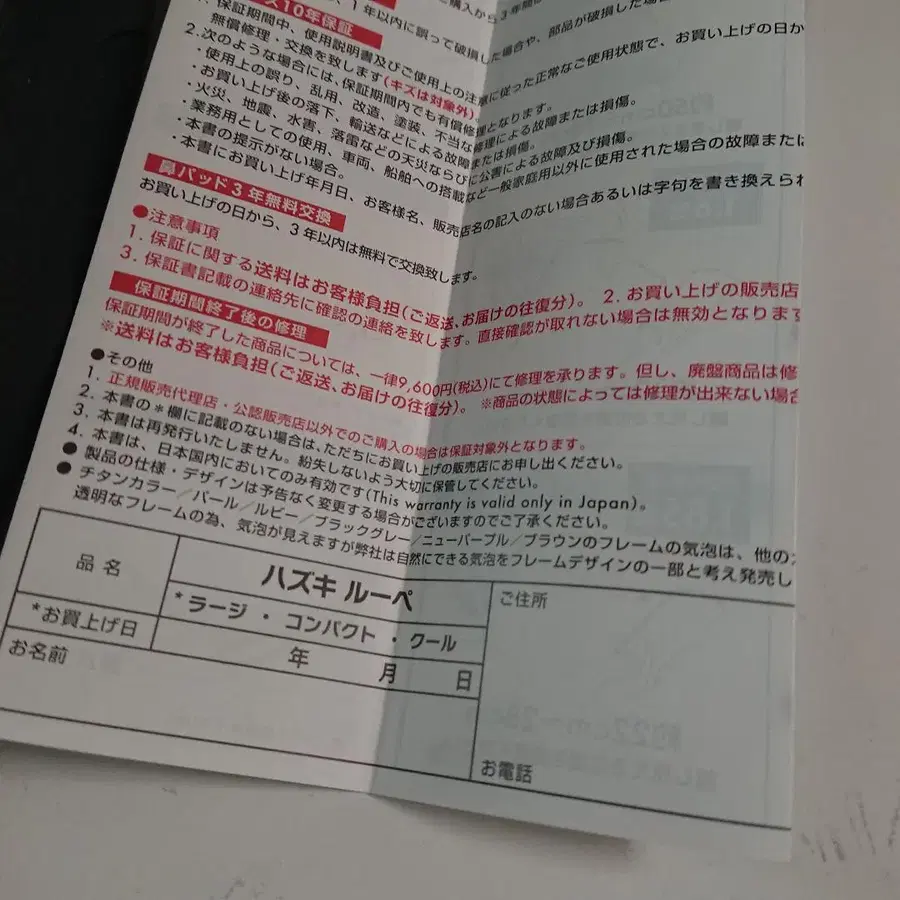 ご購入から3年間
1年以内に誤って破損した場合や、部品が破損した場合
ズ10年保証
1. 保証期間中、使用説明書及びご使用上の注意に従った正常なご使用状態で、お買い上げの日か
無償修理・交換を致します(キズは対象外)
2. 次のような場合には、保証期間内でも有償修理となります。
・使用上の誤り、乱用、改造、塗装、不当な修理による故障または損傷。
・お買い上げ後の落下、輸送などによる故障または損傷。
・火災、地震、水害、落雷などの天災ならびに公害による故障及び損傷。
・業務用としての使用、車両、船舶への搭載など一般家庭用以外に使用された場合の故障または
・本書の提示がない場合。
・本書にお買い上げ年月日、お客様名、販売店名の記入のない場合あるいは字句を書き換えられ
鼻パッド3年無料交換
お買い上げの日から、3年以内は無料で交換致します。
●注意事項
1. 保証に関する送料はお客様負担(ご返送、お届けの往復分)。 2. お買い上げの販売店
3. 保証書記載の連絡先に確認の連絡を致します。直接確認が取れない場合は無効となります
保証期間終了後の修理
保証期間が終了した商品については、一律9,600円(税込)にて修理を承ります。但し、廃盤商品は修
※送料はお客様負担(ご返送、お届けの往復分)。 ※商品の状態によっては修理が出来ない場合
●その他
1. 正規販売代理店・公認販売店以外でのご購入の場合は保証対象外となります。
2. 本書の*欄に記載のない場合は、ただちにお買い上げの販売店にお申し出ください。
3. 本書は再発行いたしません。紛失しないよう大切に保管してください。
4. 本書は、日本国内においてのみ有効です(This warranty is valid only in Japan)。
● 製品の仕様・デザインは予告なく変更する場合がございますのでご了承ください。
● チタンカラー/パール/ルビー/ブラックグレー/ニューパープル/ブラウンのフレームの気泡は、他の
透明なフレームの為、気泡が見えますが弊社は自然にできる気泡をフレームデザインの一部と考え発売し
品名
ハズキ ルーペ
*ラージ ・ コンパクト ・ クール
*お買上げ日
年 月 日
お名前
ご住所
お電話